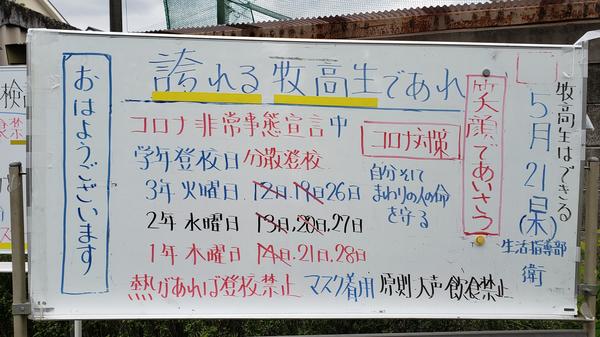 誇れる牧高生であれ
おはようございます
コロナ非常事態宣言中
学年登校日分散登校
3年火曜日 12日.19日26日
2年水曜日 13日.20日.27日
1年木曜日 14日.21日.28日
熱があれば登校禁止 マスク着用 原則大声飲食禁止
コロナ対策
自分そして
まわりの人の命
を守る
笑顔であいさつ
牧高生はできる
5月21日(木)
生活指導部
衛
検
禁